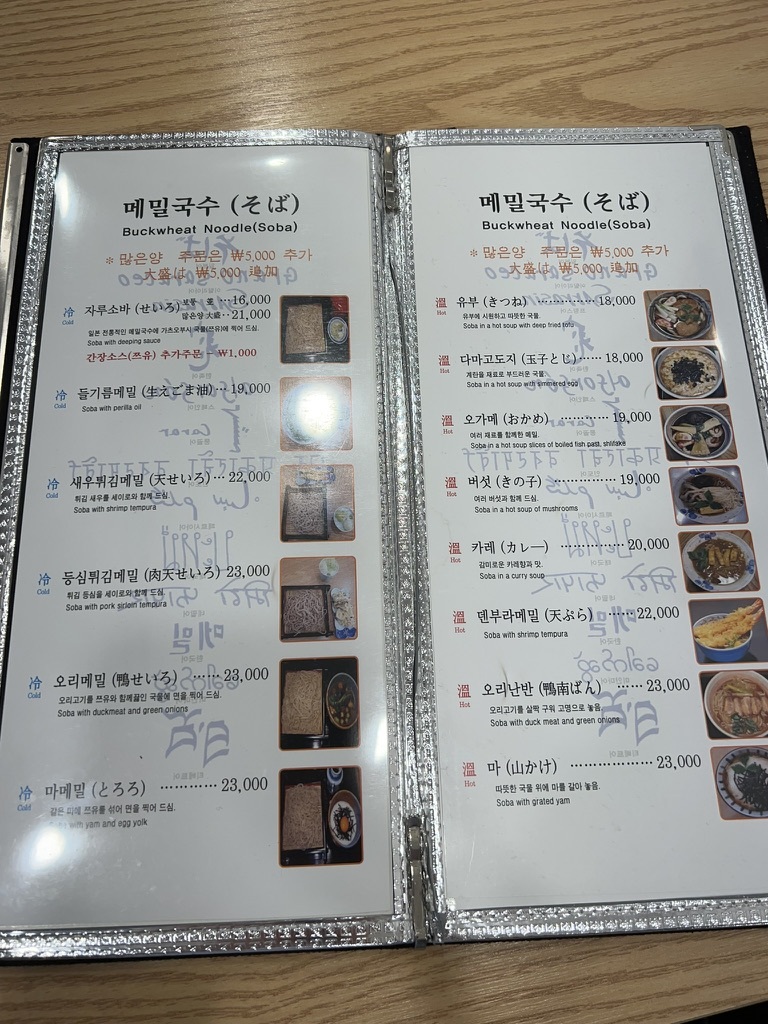 메밀국수 (そば)
Buckwheat Noodle(Soba)
※ 많은양 주문은 ₩5,000 추가
大盛は ₩5,000 追加
冷 자루소바 (せいろ) 보통 ···16,000
Cold 많은양 大盛··21,000
일본 전통적인 메밀국수에 가츠오부시 국물(쯔유)에 찍어 드심.
Soba with deeping sauce
간장소스(쯔유) 추가주문 - ₩1,000
冷 들기름메밀 (生えごま油)···19,000
Cold Soba with perilla oil
冷 새우튀김메밀 (天せいろ)···22,000
Cold 튀김 새우를 세이로와 함께 드심.
Soba with shrimp tempura
冷 등심튀김메밀 (肉天せいろ) 23,000
Cold 튀김 등심을 세이로와 함께 드심.
Soba with pork sirloin tempura
冷 오리메밀 (鴨せいろ) ······23,000
Cold 오리고기를 쯔유와 함께끓인 국물에 면을 찍어 드심.
Soba with duckmeat and green onions
冷 마메밀 (とろろ) ············23,000
Cold 갈은 마에 쯔유를 섞어 면을 찍어 드심.
Soba with yam and agg yolk
메밀국수 (そば)
Buckwheat Noodle(Soba)
※ 많은양 주문은 ₩5,000 추가
大盛は ₩5,000 追加
溫 유부 (きつね) ················18,000
Hot 유부에 시원하고 따뜻한 국물.
Soba in a hot soup with deep fried tofu
溫 다마고도지 (玉子とじ)······18,000
Hot 계란을 재료로 부드러운 국물
Soba in a hot soup with simmered egg
溫 오가메 (おかめ) ············19,000
Hot 여러 재료를 함께한 메밀.
Soba in a hot soup slices of boiled fish past, shiitake
溫 버섯 (きの子) ··············19,000
Hot 여러 버섯과 함께 드심.
Soba in a hot soup of mushrooms
溫 카레 (カレー) ··············20,000
Hot 감미로운 카레향과 맛.
Soba in a curry soup
溫 덴부라메밀 (天ぷら) ······22,000
Hot Soba with shrimp tempura
溫 오리난반 (鴨南ばん) ······23,000
Hot 오리고기를 살짝 구워 고명으로 놓음.
Soba with duck meat and green onions
溫 마 (山かけ) ··············23,000
Hot 따뜻한 국물 위에 마를 갈아 놓음.
Soba with grated yam